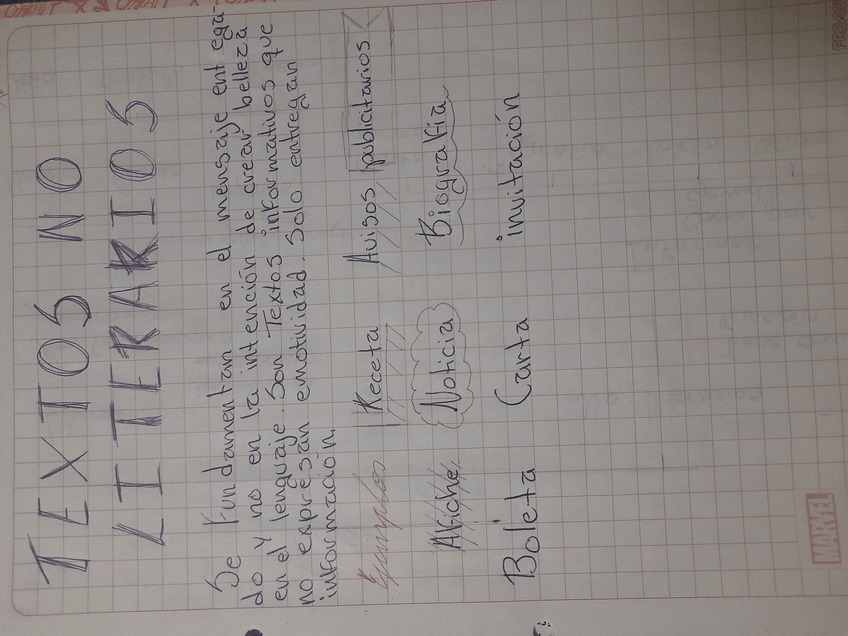 TEXTOS NO
LITERARIOS
Se Fundamentan en el mensaje entega-
do y no en la intención de crear belleza
en el lenguaje. Son Textos informativos que
no expresan emotividad. Solo entregan
información.
Ejemplos Receta Avisos publicitarios
Afiche Noticia Biografía
Boleta Carta invitación
MARVEL